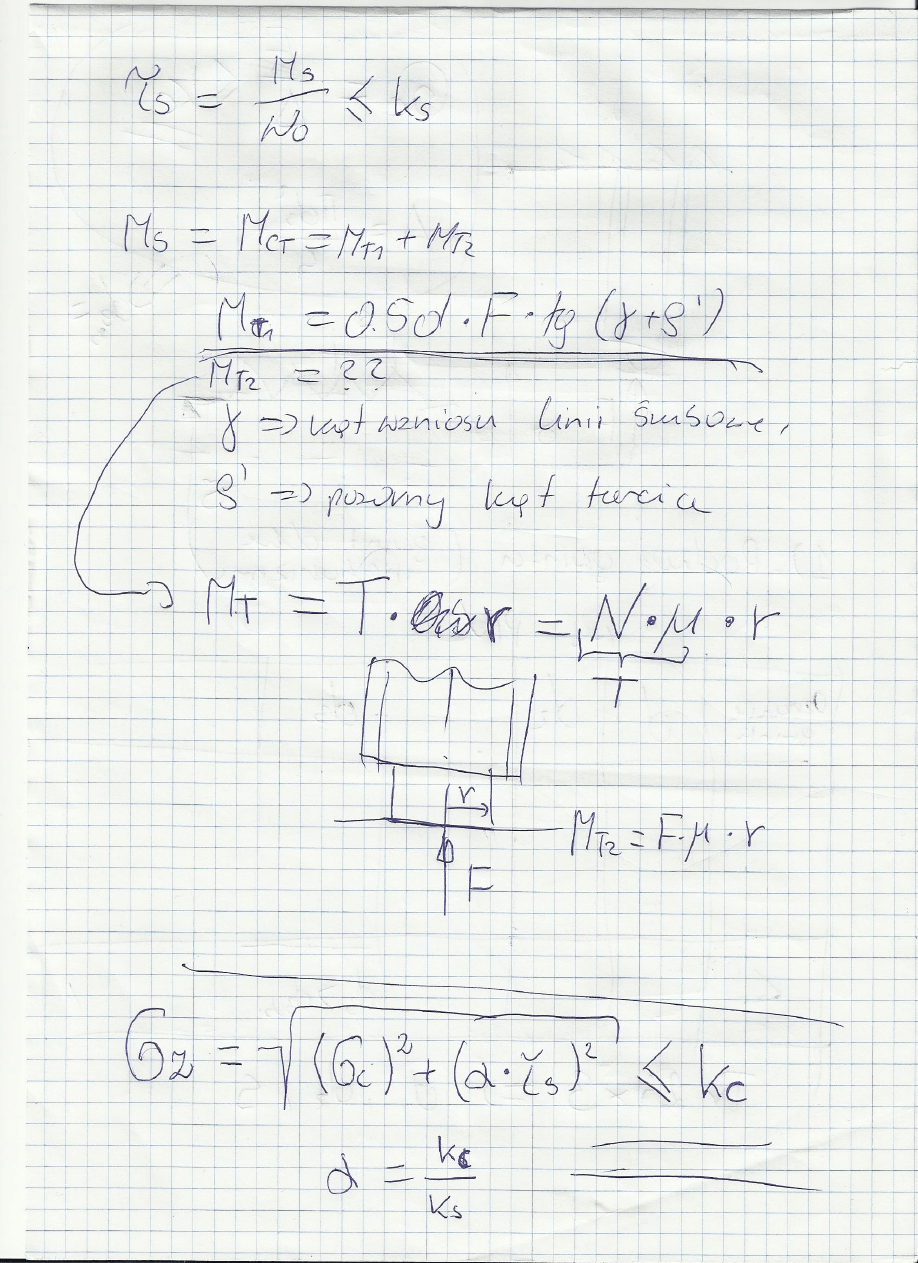 τs = Ms / Wo ≤ ks
Ms = MCT = MT1 + MT2
MT1 = 0.5d · F · tg (γ+ρ')
MT2 = ??
γ => kąt wzniosu linii śrubowe,
ρ' => pozorny kąt tarcia
MT = T · r = N · μ · r
T
r
MT2 = F·μ · r
F
σz = √((σc)² + (α·τs)²) ≤ kc
α = kc / ks